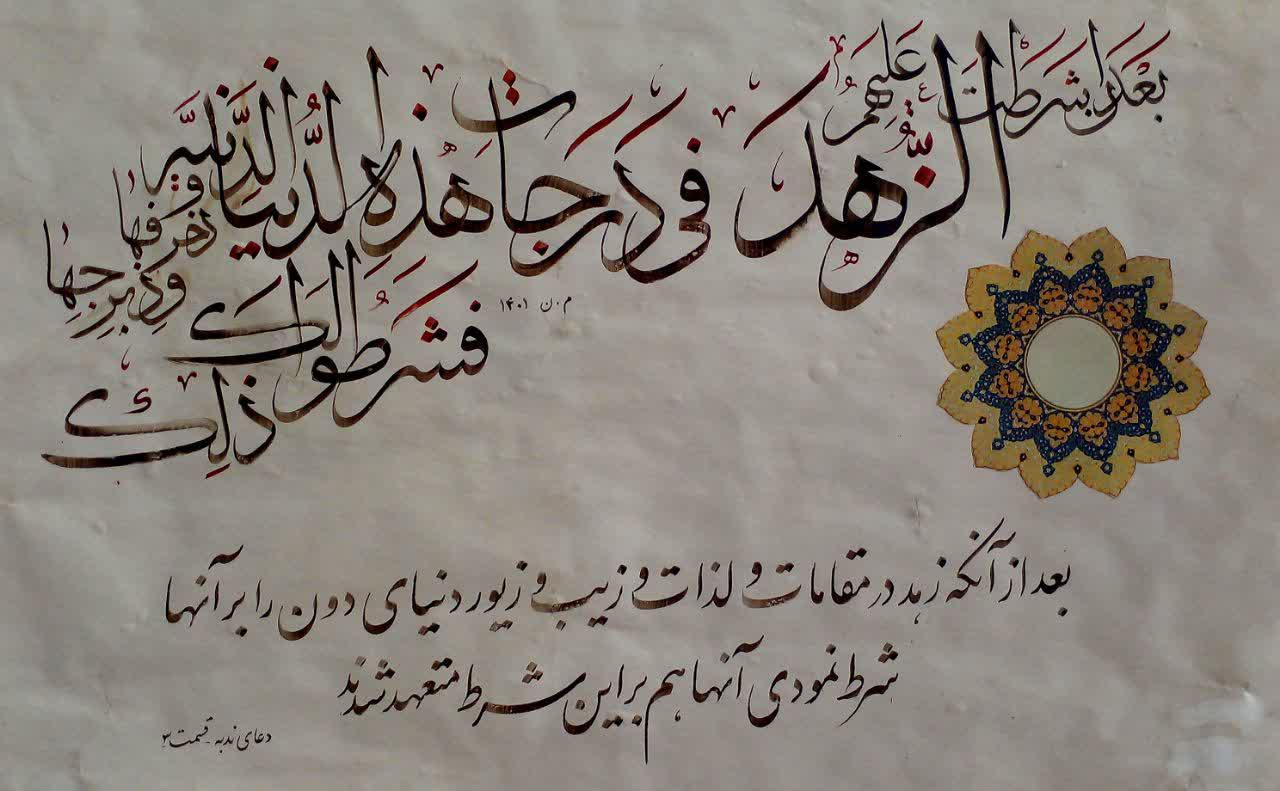 بَعْدَ اَنْ شَرَطْتَ عَلَیْهِمُ
الزُّهْدَ فی دَرَجاتِ هٰذِهِ الدُّنْیَا الدَّنِیَّةِ
وَ زُخْرُفِها
وَ زِبْرِجِها
فَشَرَطُوا لَکَ
ذٰلِکَ
م.ن ۱۴۰۱
بعد از آنکه زهد در مقامات و لذات و زیب و زیور دنیای دون را بر آنها
شرط نمودی آنها هم بر این شرط متعهد شدند
دعای ندبه - قسمت ۳